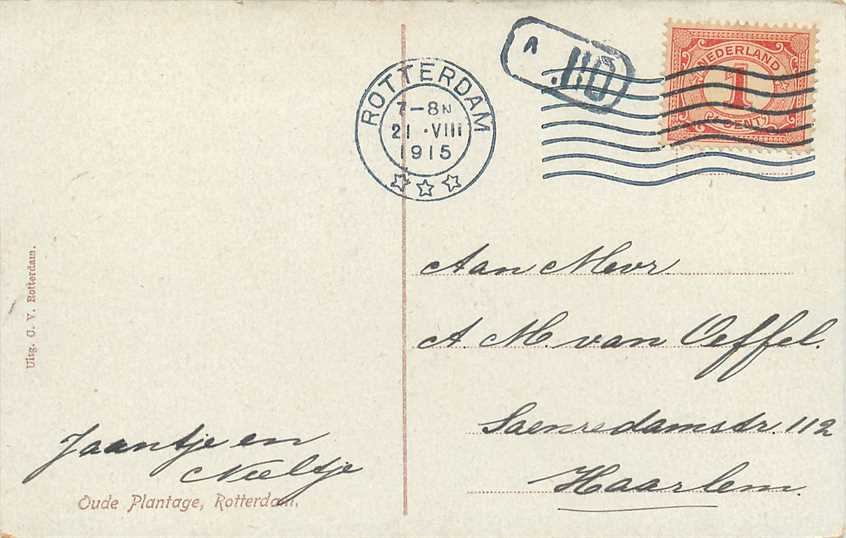 ROTTERDAM
7-8N
21 ·VIII
1915
110
NEDERLAND
1
CENT
Aan Mevr.
A. M. van Oeffel.
Saenredamstr. 112
Haarlem.
Jaantje en
Neeltje
Oude Plantage, Rotterdam.
Uitg. C. V. Rotterdam.